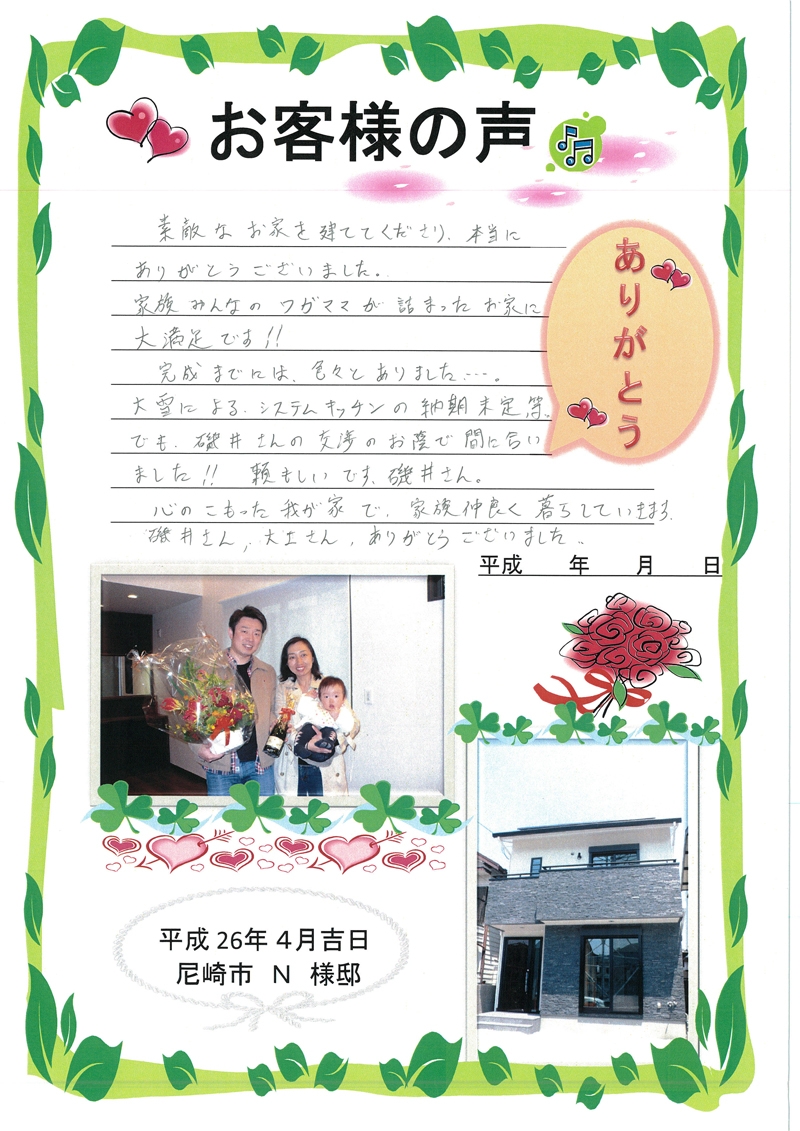 お客様の声
素敵な お家を建ててくださり、本当に
ありがとうございました。
家族みんなの ワガママが 詰まった お家に
大満足です!!
完成までには、色々と ありました…。
大雪による、システムキッチンの納期未定等。
でも、磯井さんの交渉のお蔭で間に合い
ました!! 頼もしいです、磯井さん。
心のこもった我が家で、家族仲良く暮らしていきます。
磯井さん、大土さん、ありがとうございました。
ありがとう
平成 年 月 日
平成26年4月吉日
尼崎市 N 様邸